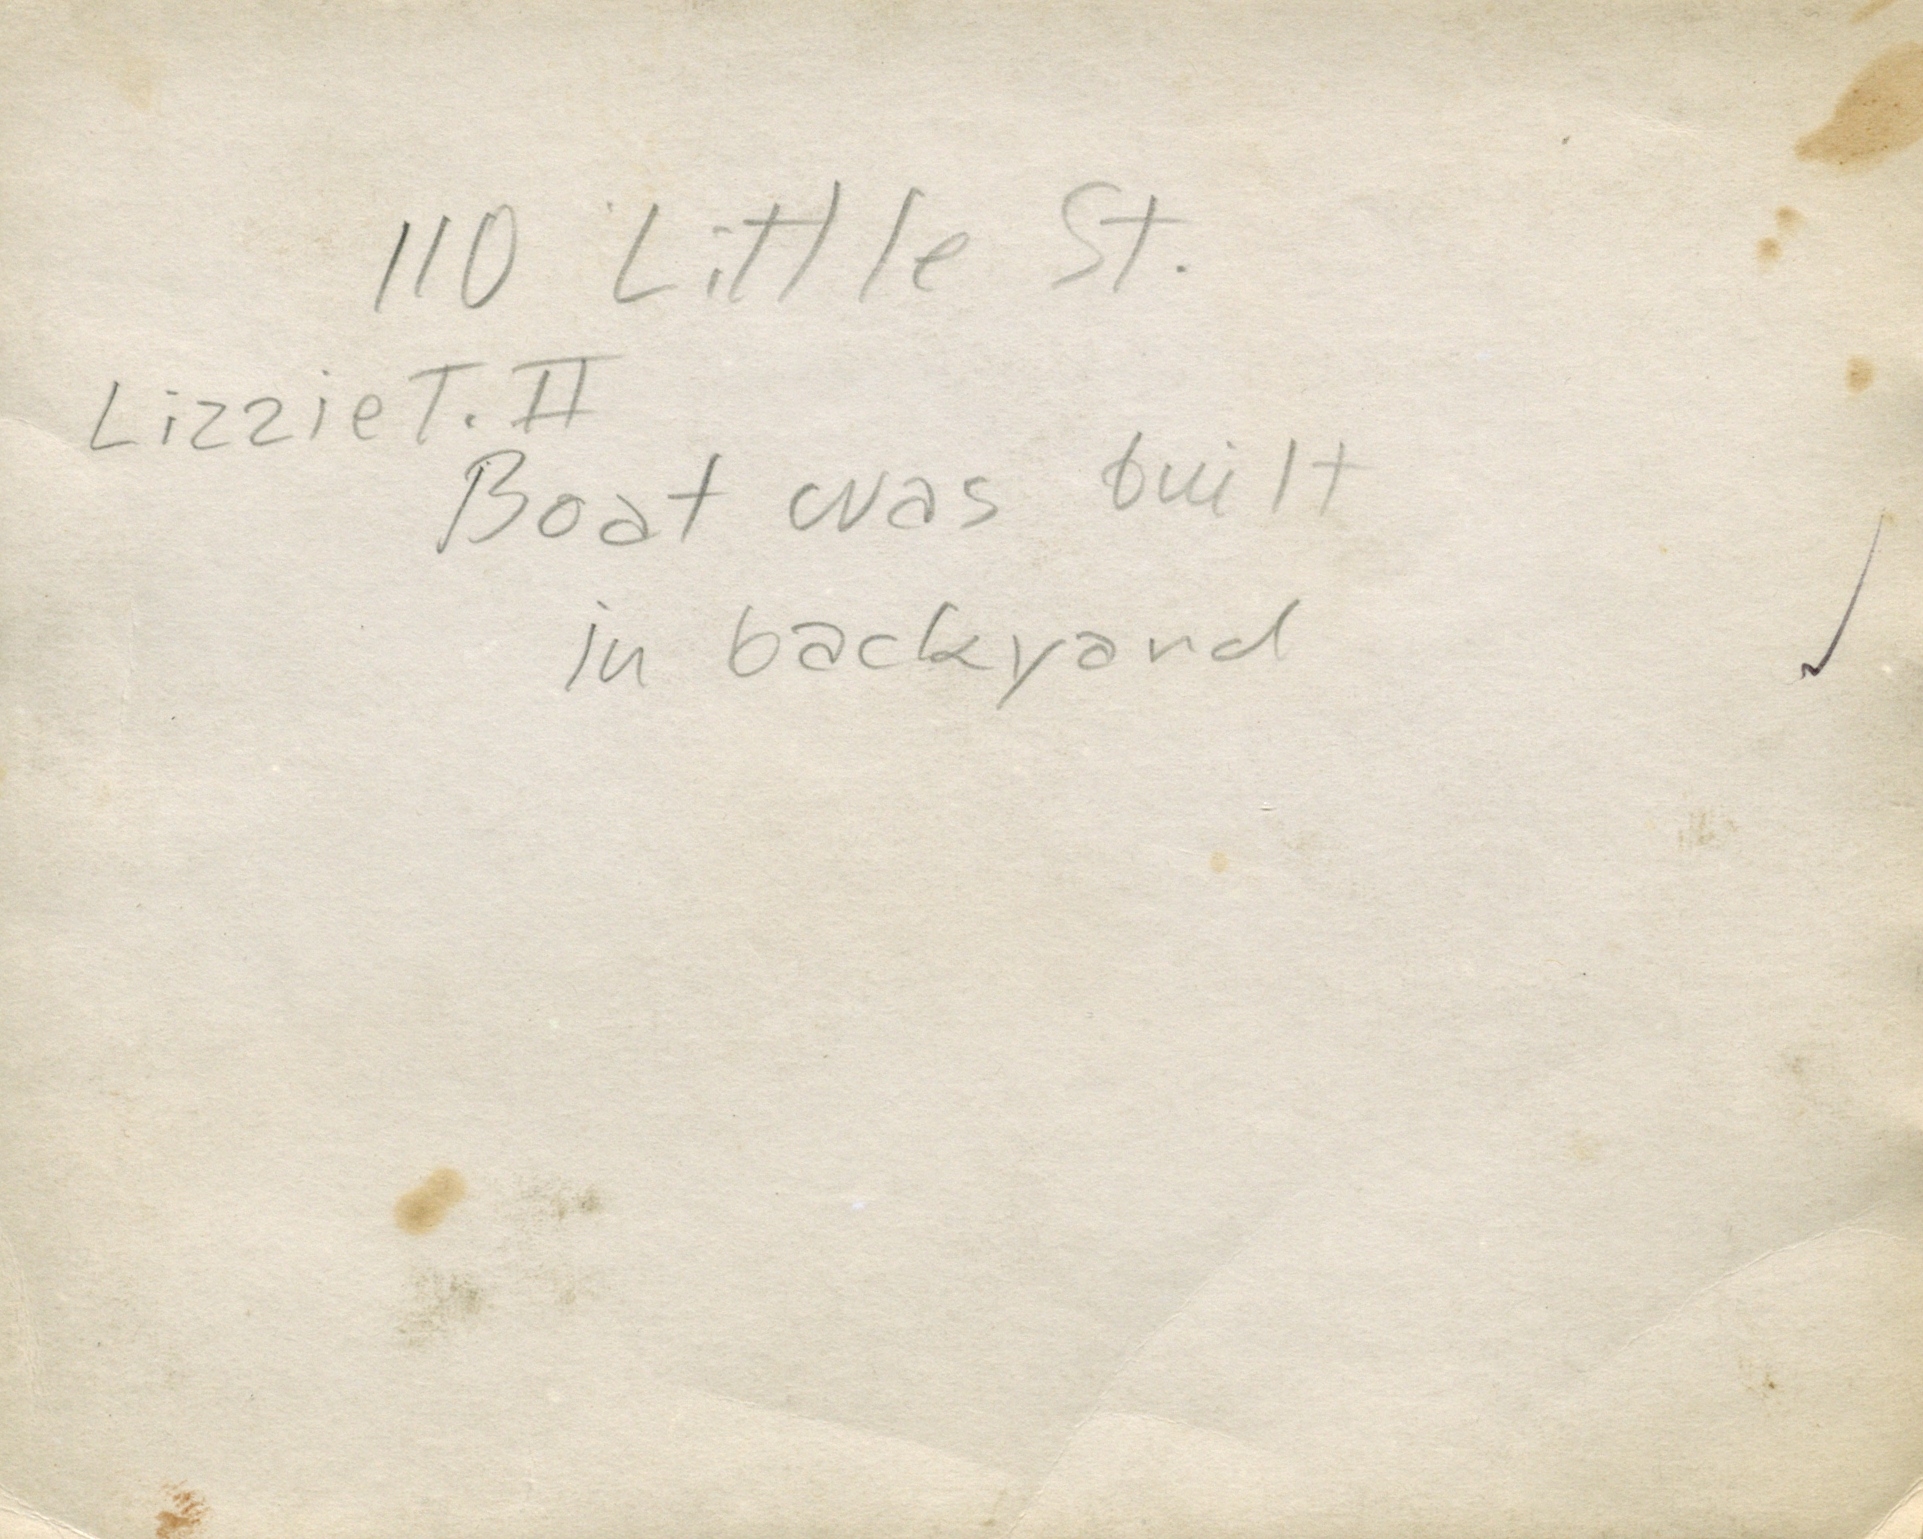 110 Little St.
Lizzie T. II
Boat was built
in backyard